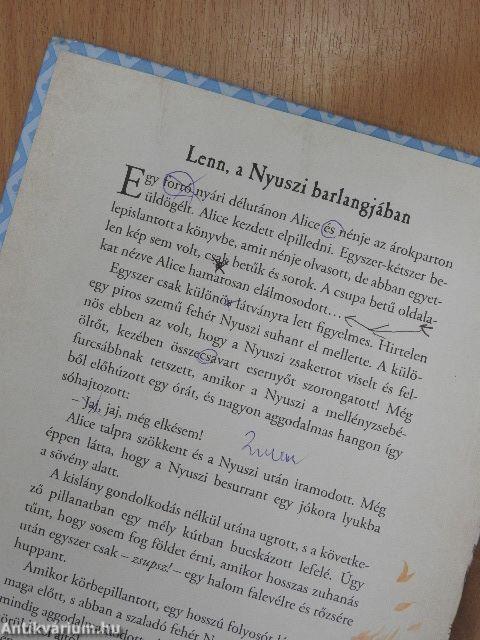 Lenn, a Nyuszi barlangjában
Egy forró nyári délutánon Alice és nénje az árokparton
üldögélt. Alice kezdett elpilledni. Egyszer-kétszer be-
lepislantott a könyvbe, amit nénje olvasott, de abban egyet-
len kép sem volt, csak betűk és sorok. A csupa betű oldala-
kat nézve Alice hamarosan elálmosodott…
Egyszer csak különös látványra lett figyelmes. Hirtelen
egy piros szemű fehér Nyuszi suhant el mellette. A külö-
nös ebben az volt, hogy a Nyuszi zsakettot viselt és fel-
öltőt, kezében összecsavart esernyőt szorongatott! Még
furcsábbnak tetszett, amikor a Nyuszi a mellényzsebé-
ből előhúzott egy órát, és nagyon aggodalmas hangon így
sóhajtozott:
– Jaj, jaj, még elkésem!
Alice talpra szökkent és a Nyuszi után iramodott. Még
éppen látta, hogy a Nyuszi besurrant egy jókora lyukba
a sövény alatt.
A kislány gondolkodás nélkül utána ugrott, s a követke-
ző pillanatban egy mély kútban bucskázott lefelé. Úgy
tűnt, hogy sosem fog földet érni, amikor hosszas zuhanás
után egyszer csak – zsupsz! – egy halom falevélre és rőzsére
huppant.
Amikor körbepillantott, egy hosszú folyosót lá-
maga előtt, s abban a szaladó fehér N
mindig aggodal
Antikvárium.hu